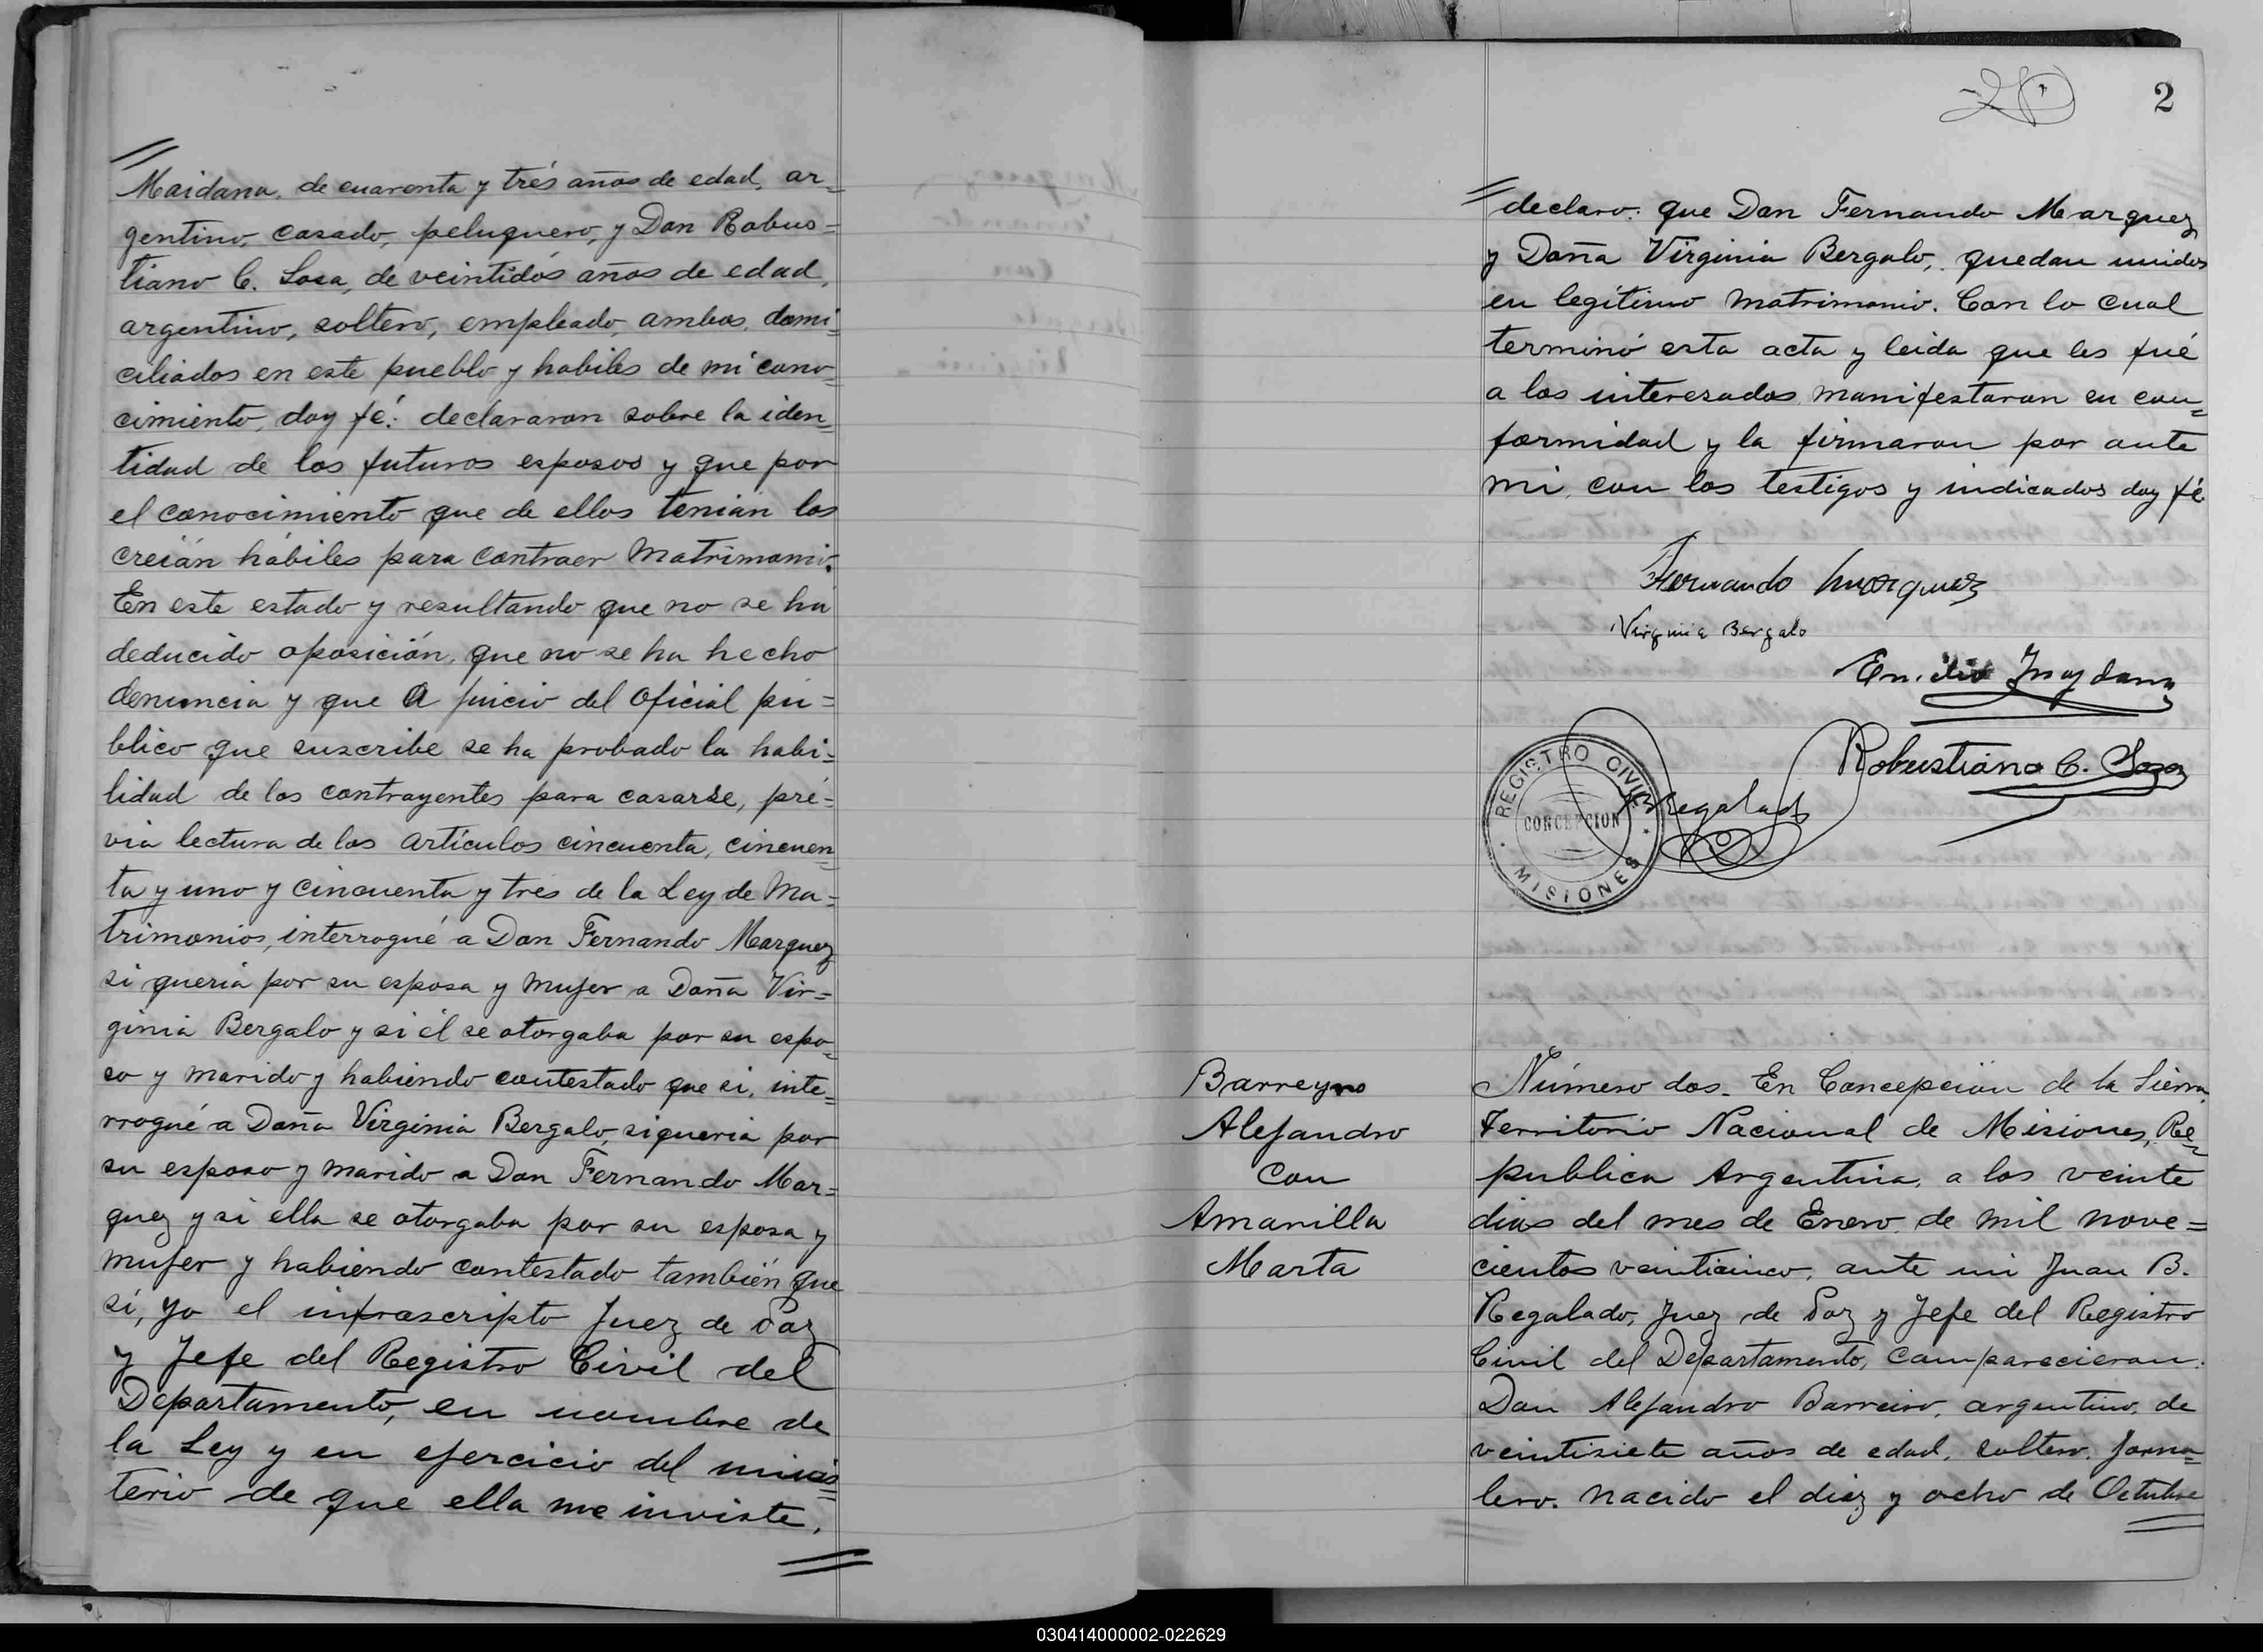 Maidana, de cuarenta y trés años de edad, ar=
gentino, casado, peluquero, y Don Robus=
tiano C. Sosa, de veintidós años de edad,
argentino, soltero, empleado, ambos domi=
ciliados en este pueblo y habiles de mi cono=
cimiento, doy fé: declararon sobre la iden=
tidad de los futuros esposos y que por
el conocimiento que de ellos tenián los
creián hábiles para contraer Matrimonio.
En este estado y resultando que no se ha
deducido oposición, que no se ha hecho
denuncia y que a juicio del Oficial pú=
blico que suscribe se ha probado la habi=
lidad de los contrayentes para casarse, pré=
via lectura de los artículos cincuenta, cincuen=
ta y uno y cincuenta y tres de la Ley de Ma=
trimonios, interrogué a Don Fernando Marquez
si queria por su esposa y mujer a Doña Vir=
ginia Bergalo y si él se otorgaba por su espo=
so y marido y habiendo contestado que si, inte=
rrogué a Doña Virginia Bergalo, si queria por
su esposo y marido a Don Fernando Mar=
quez y si ella se otorgaba por su esposa y
mujer y habiendo contestado también que
si, yo el infrascripto Juez de Paz
y Jefe del Registro Civil del
Departamento, en nombre de
la Ley y en ejercicio del minis=
terio de que ella me inviste,
2
declaro: que Don Fernando Marquez
y Doña Virginia Bergalo, quedan unidos
en legítimo matrimonio. Con lo cual
terminó esta acta y leida que les fué
a los interesados manifestaron su con=
formidad y la firmaron por ante
mi, con los testigos y indicados doy fé
Fernando Marquez
Virginia Bergalo
Emilio Maydana
Robustiano C. Sosa
JBRegalado
REGISTRO CIVIL
CONCEPCION
MISIONES
Barreyro
Alejandro
Con
Amarilla
Marta
Número dos. En Concepción de la Sierra
Territorio Nacional de Misiones, Re=
publica Argentina, a los veinte
dias del mes de Enero de mil nove=
cientos veinticinco, ante mi Juan B.
Regalado, Juez de Paz y Jefe del Registro
Civil del Departamento, comparecieron.
Don Alejandro Barreiro, argentino, de
veintisiete años de edad, soltero, jorna=
lero. nacido el diez y ocho de Octubre
030414000002-022629